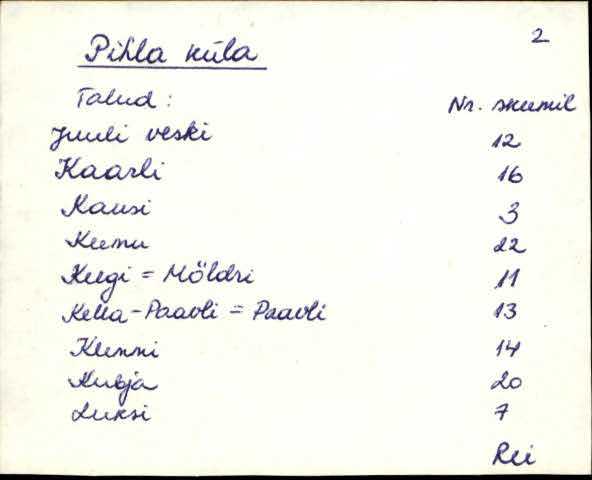 2
Pihla küla
Talud: Nr. skeemil
Juuli veski 12
Kaarli 16
Kausi 3
Keemu 22
Keegi = Möldri 11
Kella-Paavli = Paavli 13
14
Kubja 20
Luksi 7
Rei